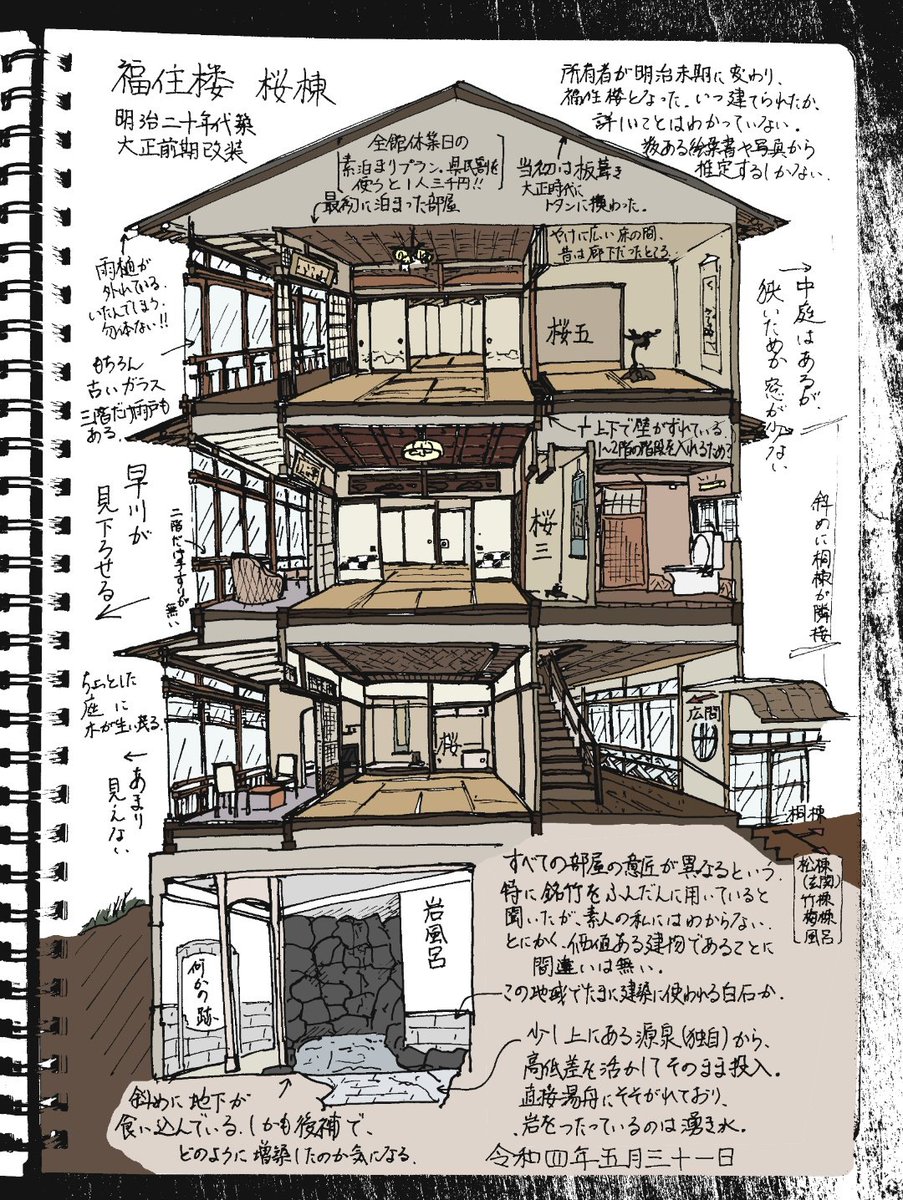 福住楼 桜棟
明治二十年代築
大正前期改装
所有者が明治末期に変わり、
福住楼となった。いつ建てられたか、
詳しいことはわかっていない。
数ある絵葉書や写真から
推定するしかない。
全館休業日の
素泊まりプラン。県民割を
使うと1人三千円!!
最初に泊まった部屋
当初は板葺き
大正時代に
トタンに換わった。
雨樋が
外れている。
いたんでしまう、
勿体ない!!
やけに広い床の間、
昔は廊下だったところ。
桜五
もちろん
古いガラス
三階だけ雨戸も
ある。
中庭はあるが、
狭いためか窓が少ない
上下で壁がずれている。
1~2階の階段を入れるため?
早川が
見下ろせる
二階だけ手すりが
無い
桜三
斜めに桐棟が隣接
ちょっとした
庭に
木が生い茂る。
あまり
見えない
桜
広間
桐棟
松棟
(玄関)
竹棟
梅棟
風呂
すべての部屋の意匠が異なるという。
特に銘竹をふんだんに用いていると
聞いたが、素人の私にはわからない。
とにかく、価値ある建物であることに
間違いは無い。
岩風呂
何かの跡
この地域でたまに建築に使われる白石か。
少し上にある源泉(独自)から、
高低差を活かしてそのまま投入。
直接湯舟にそそがれており、
岩をつたっているのは湧き水。
斜めに地下が
食い込んでいる。しかも後補で、
どのように増築したのか気になる。
令和四年五月三十一日